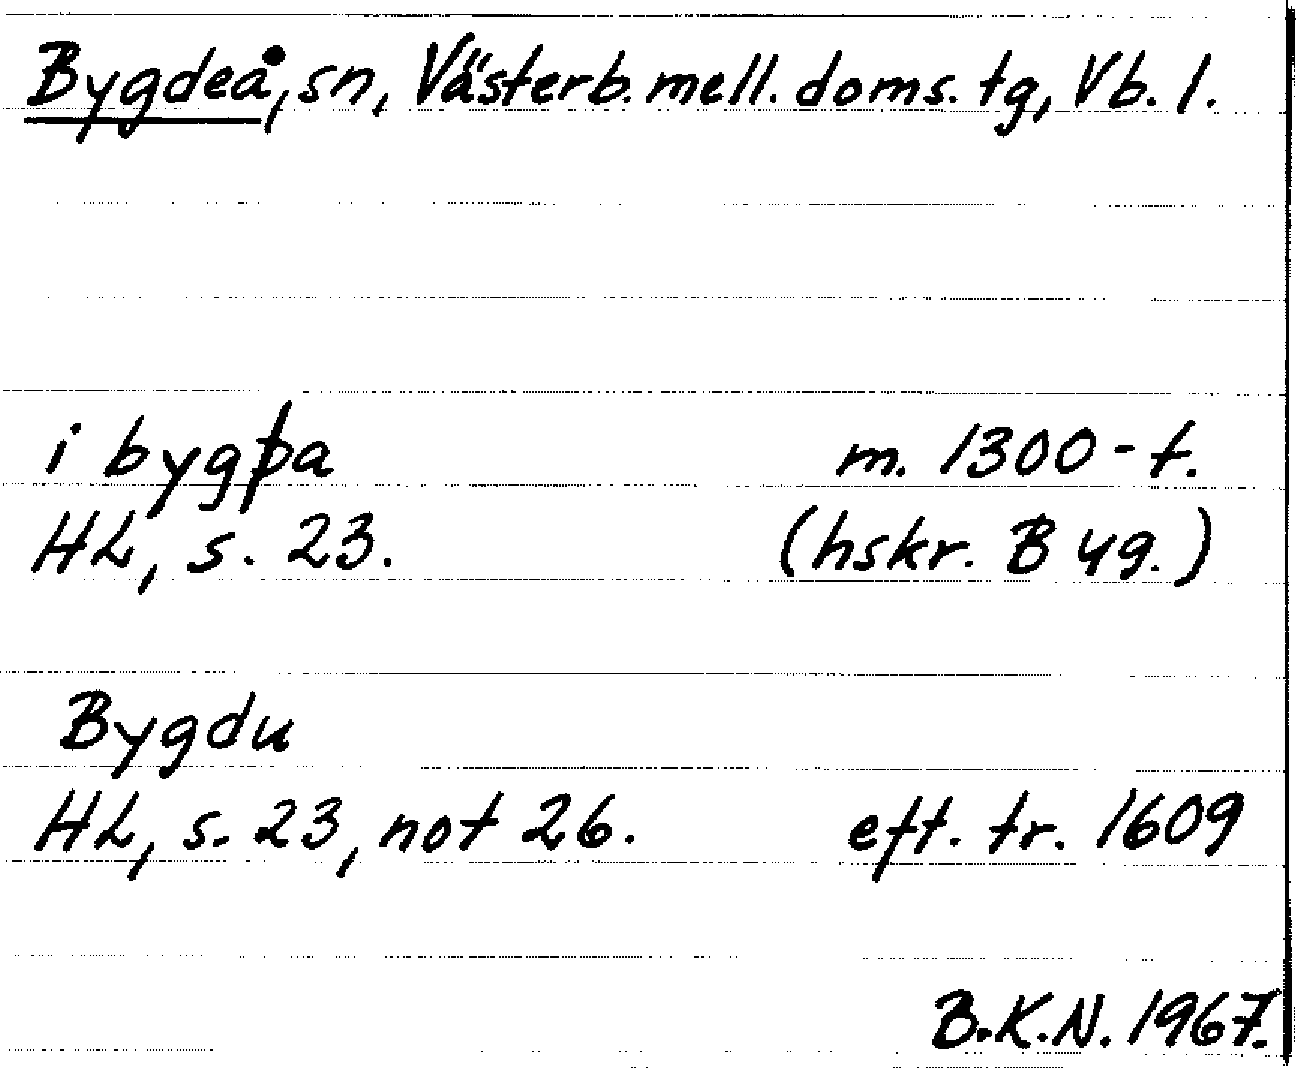 Bygdeå, sn, Västerb. mell. doms. tg, Vb. l.
i bygþa m. 1300-t.
HL, s. 23. (hskr. B 49.)
Bygdu
HL, s. 23, not 26. eft. tr. 1609
B.K.N. 1967.